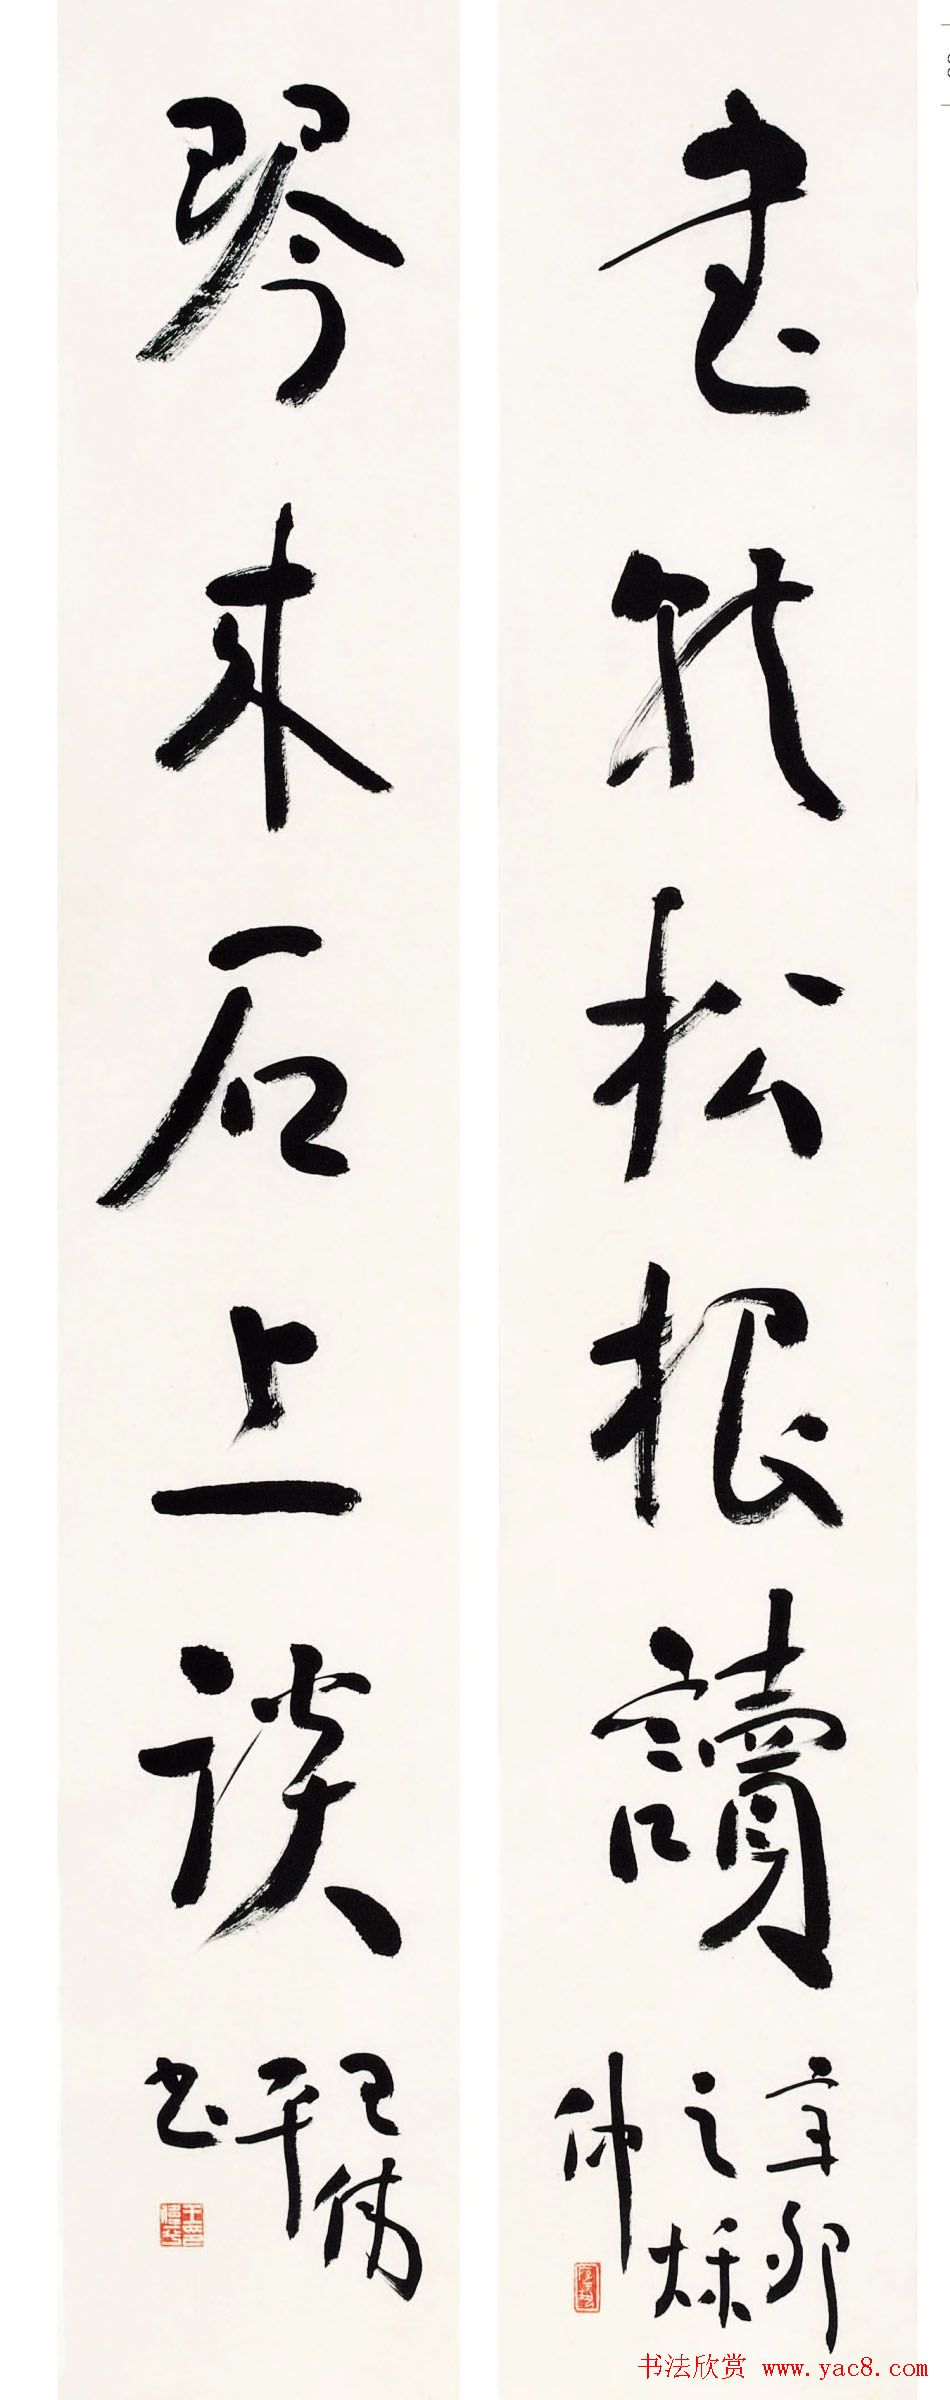 書就松根讀
辛卯
之秋
仲
琴来石上談
王伟
平
书
书法欣赏 www.yac8.com